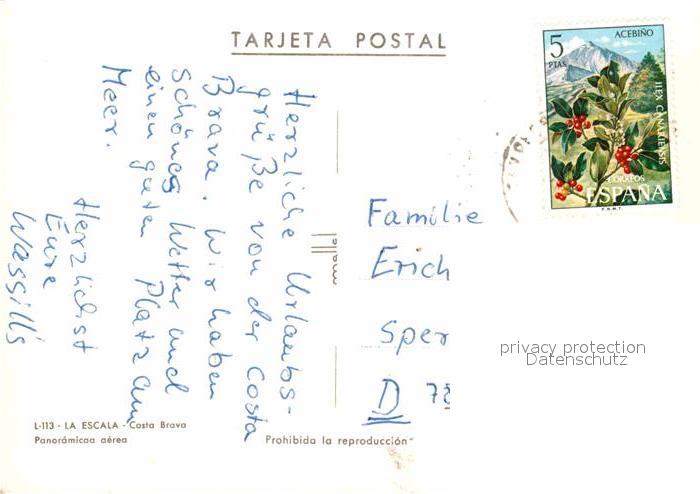 TARJETA POSTAL
5
PTAS
ACEBIÑO
ILEX CANARIENSIS
CORREOS
ESPAÑA
F.N.M.T.
Herzliche Urlaubs-
grüße von der Costa
Brava. Wir haben
schönes Wetter und
einen guten Platz am
Meer.
Herzlichst
Eure
Wassilis
Familie
Erich
Sper
D 78
privacy protection
Datenschutz
L-113 - LA ESCALA - Costa Brava
Panorámicaa aérea
Prohibida la reproducción